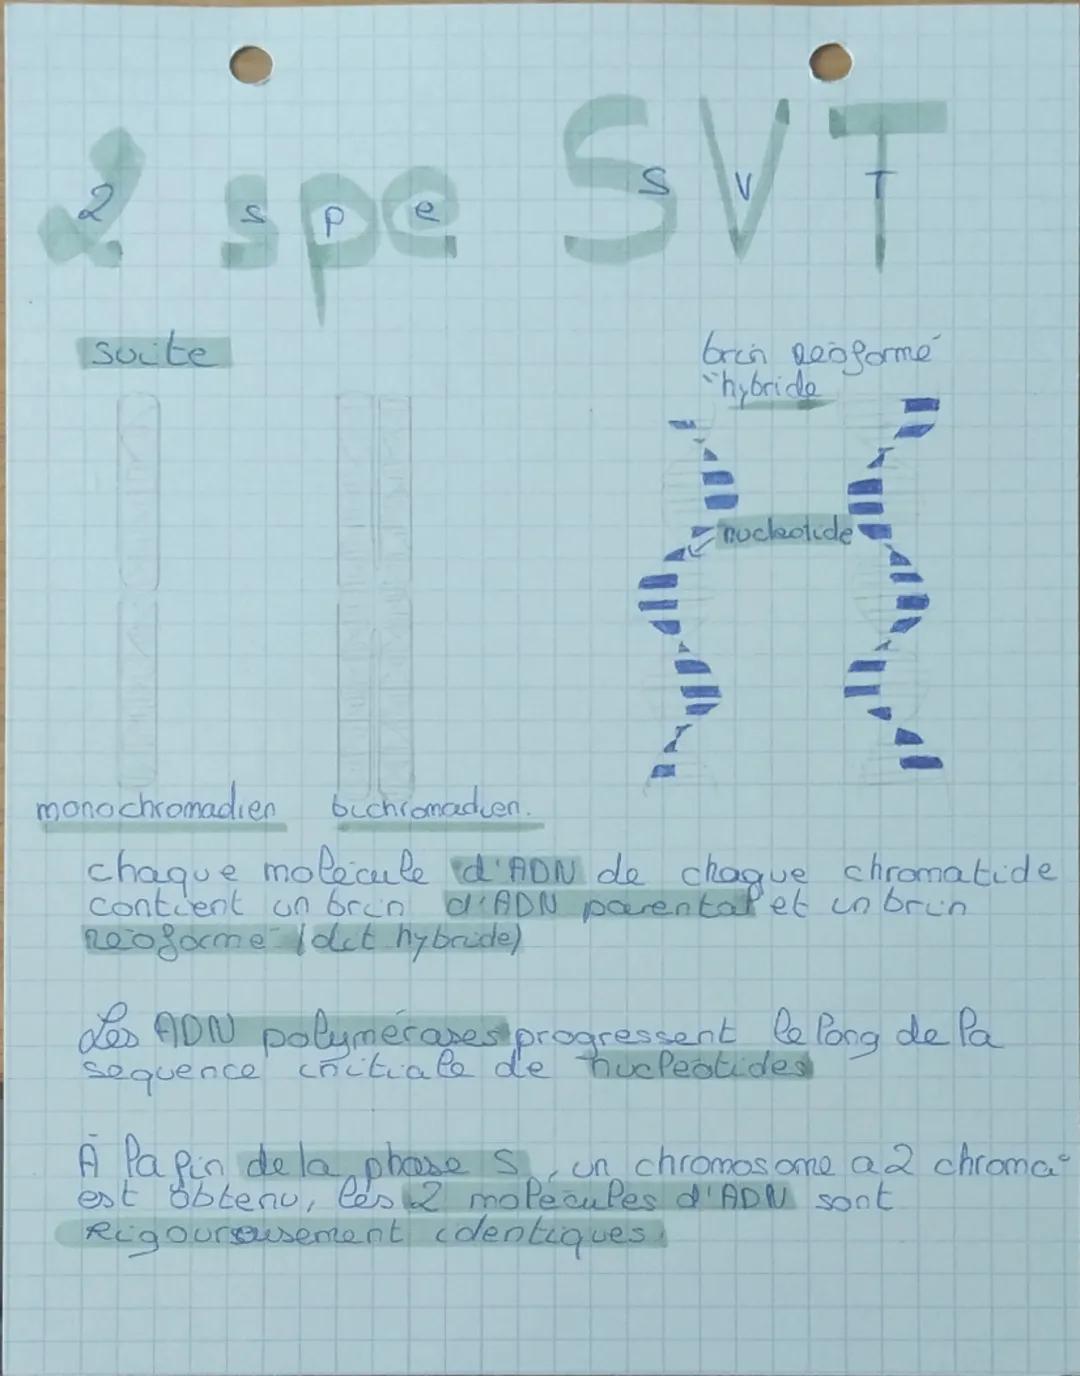 2 spe SVT
suite
brin néoformé
"hybride
nucleotide
monochromadien bichromadien.
chaque molécule d'ADN de chaque chromatide
contient un brin d'ADN parental et un brin
néoformé (dit hybride)
Les ADN polymérases progressent le long de la
sequence initiale de nucleotides
À la fin de la phase S, un chromosome a 2 chroma
est obtenu, les 2 molécules d'ADN sont
Rigoureusement identiques.